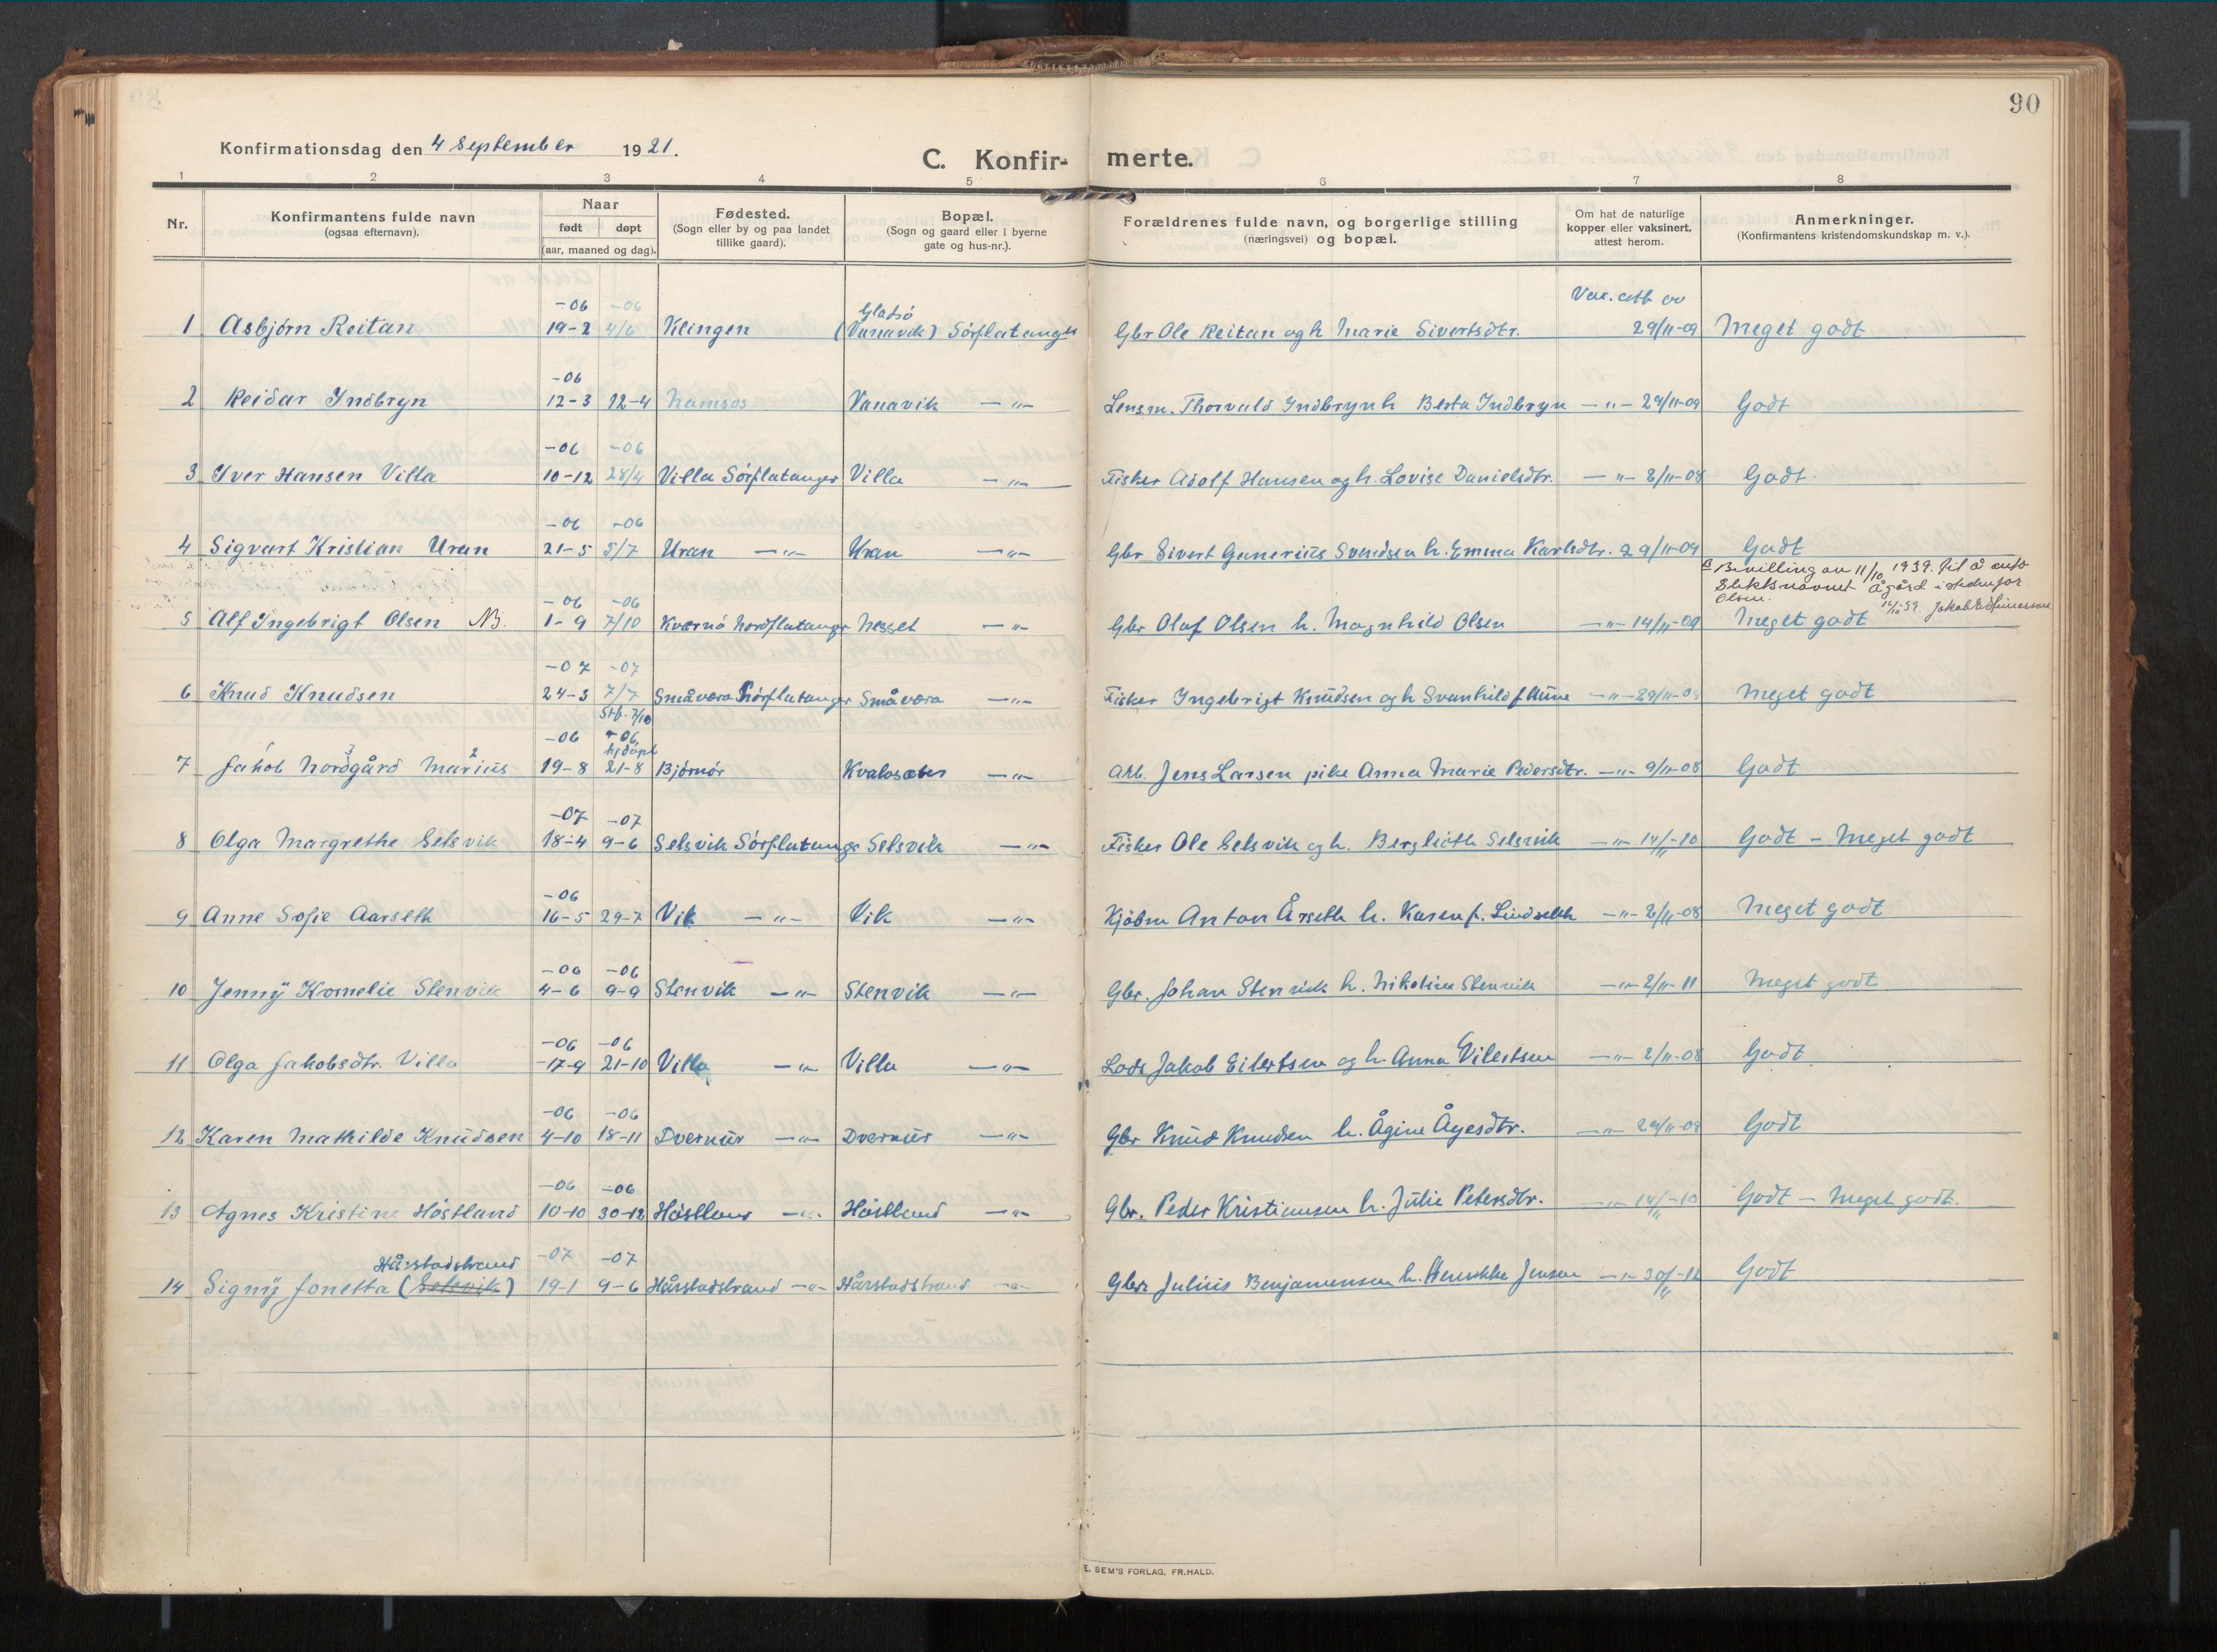 90
Konfirmationsdag den 4 September 1921.
C. Konfir- merte.
1 2 3 4 5 6 7 8
Nr. Konfirmantens fulde navn (ogsaa efternavn). Naar født døpt (aar, maaned og dag). Fødested. (Sogn eller by og paa landet tillike gaard). Bopæl. (Sogn og gaard eller i byerne gate og hus-nr.). Forældrenes fulde navn, og borgerlige stilling (næringsvei) og bopæl. Om hat de naturlige kopper eller vaksinert, attest herom. Anmerkninger. (Konfirmantens kristendomskundskap m. v.).
-06 -06 Gladsö Vac. att av
1 Asbjörn Reitan 19-2 4/6 Klingen (Vanavik) Sörflatanger Gbr Ole Reitan og h Marie Sivertsdtr. 29/11-09 Meget godt
-06
2 Reidar Indbryn 12-3 12-4 Namsos Vanavik -"- Lensm. Thorvald Indbryn h Berta Indbryn -"- 29/11-09 Godt
-06 -06
3 Iver Hansen Villa 10-12 28/4 Villa Sörflatanger Villa -"- Fisker Adolf Hansen og h. Lovise Danielsdtr. -"- 2/11-08 Godt.
-06 -06
4 Sigvart Kristian Uran 21-5 5/7 Uran -"- Uran -"- Gbr Sivert Gunerius Svendsen h. Emma Karlsdtr. 29/11-09 Godt
Bevilling av 11/10 1939 til å anta
Slektsnavnet Ågård i stedenfor
Olsen.
-06 -06
5 Alf Ingebrigt Olsen NB. 1-9 7/10 Kværnö Nordflatanger Nesset -"- Gbr Olaf Olsen h. Magnhild Olsen -"- 14/11-09 Meget godt
-07 -07
6 Knud Knudsen 24-3 7/7 Småværa Sörflatanger Småværa -"- Fisker Ingebrigt Knudsen og h Svanhild f Aune -"- 29/11-09 Meget godt
Stb. 7/10
-06 -06
hjdöpt
7 Jakob Nordgård Marius 19-8 21-8 Björnör Kvalosæter -"- Arb. Jens Larsen pike Anna Marie Pedersdtr. -"- 9/11-08 Godt
-07 -07
8 Olga Margrethe Selsvik 18-4 9-6 Selsvik Sörflatanger Selsvik -"- Fisker Ole Selsvik og h. Bergliöth Selsvik -"- 14/11-10 Godt - Meget godt
-06
9 Anne Sofie Aarseth 16-5 29-7 Vik -"- Vik -"- Kjöbm Anton Årseth h. Karen f. Lindseth -"- 2/11-08 Meget godt
-06 -06
10 Jenny Kornelie Stenvik 4-6 9-9 Stenvik -"- Stenvik -"- Gbr. Johan Stenvik h. Nikoline Stenvik -"- 2/11-11 Meget godt
-06 -06
11 Olga Jakobsdtr. Villa -17-9 21-10 Villa -"- Villa -"- Lods Jakob Eilertsen og h. Anna Eilertsen -"- 2/11-08 Godt
-06 -06
12 Karen Mathilde Knudsen 4-10 18-11 Dversur -"- Dversur -"- Gbr Knud Knudsen h. Ågine Ågesdtr. -"- 29/11-09 Godt
-06 -06
13 Agnes Kristine Höstland 10-10 30-12 Höstland -"- Höstland -"- Gbr. Peder Kristiansen h. Julie Petersdtr. -"- 14/11-10 Godt - Meget godt.
Hårstadstrand -07 -07
14 Signy Jonetta (Selsvik) 19-1 9-6 Hårstadstrand -"- Hårstadstrand -"- Gbr. Julius Benjaminsen h. Henrikke Jensen -"- 30/11-12 Godt
E. SEM'S FORLAG, FR.HALD.